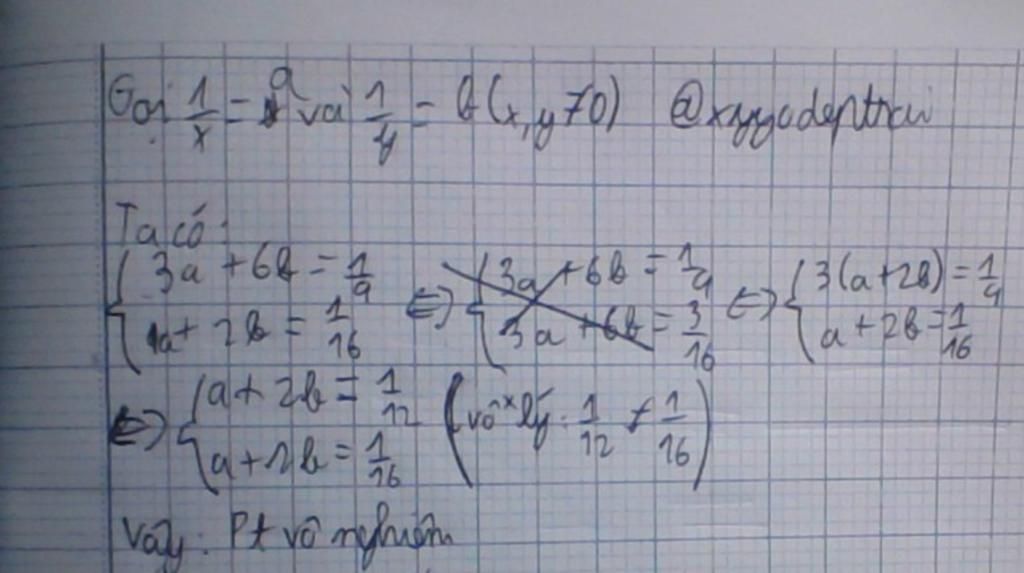 Gọi 1/x = a và 1/y = b (x, y ≠ 0) @xyycdeptrai
Ta có:
{ 3a + 6b = 1/4 ; 1a + 2b = 1/16 ⇔ { 3a + 6b = 1/4 ; 3a + 6b = 3/16 ⇔ { 3(a+2b) = 1/4 ; a + 2b = 1/16
⇔ { a + 2b = 1/12 ; a + 2b = 1/16 (vô lý: 1/12 ≠ 1/16)
Vậy: Pt vô nghiệm